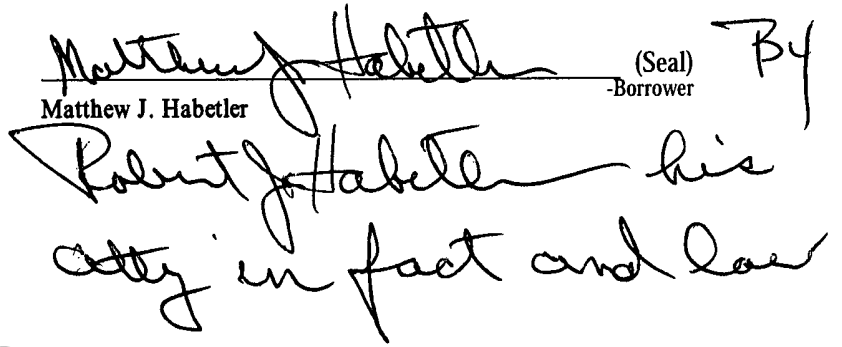 Matthew J Habetler (Seal) By
Matthew J. Habetler -Borrower
Robert J. Habetler his
atty in fact and law